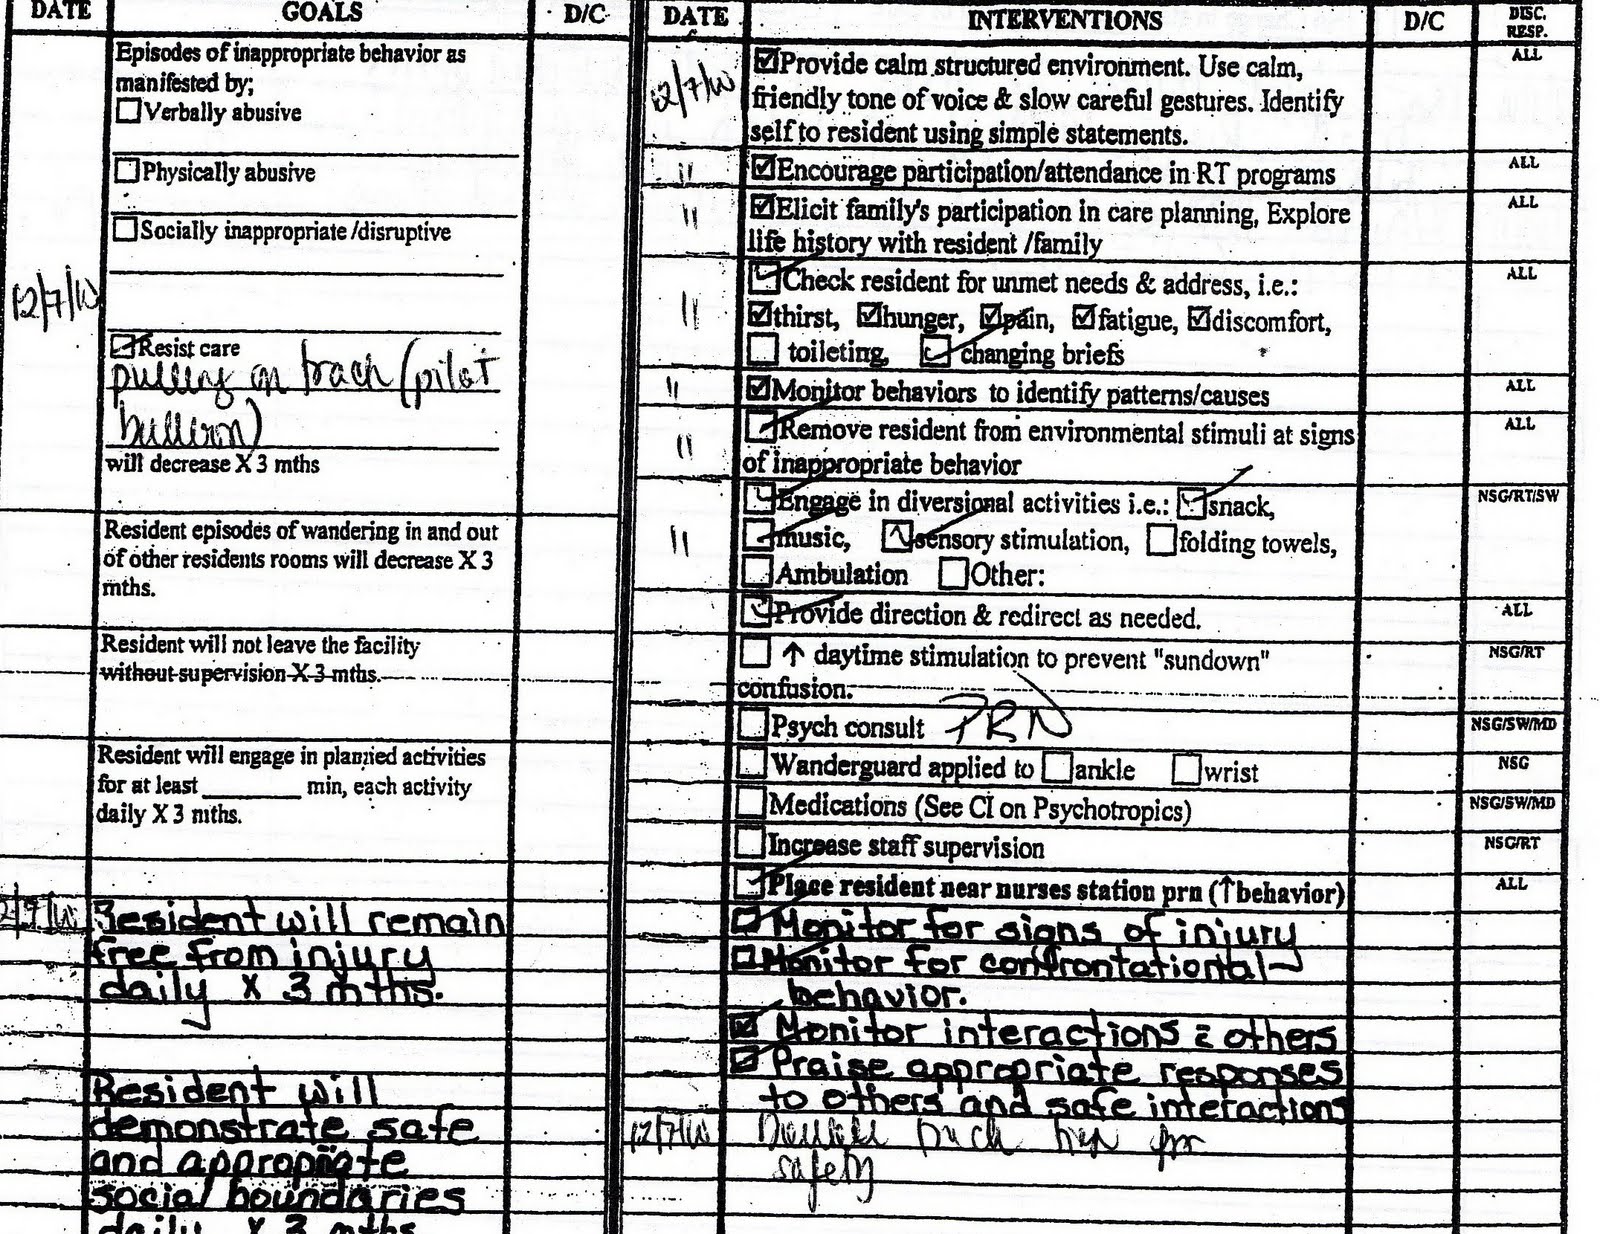 DATE GOALS D/C
Episodes of inappropriate behavior as
manifested by;
☐Verbally abusive
☐Physically abusive
☐Socially inappropriate /disruptive
12/7/10
☑Resist care
pulling on trach (pilot
balloon)
will decrease X 3 mths
Resident episodes of wandering in and out
of other residents rooms will decrease X 3
mths.
Resident will not leave the facility
without supervision X 3 mths.
Resident will engage in planned activities
for at least ________ min, each activity
daily X 3 mths.
12/7/10 Resident will remain
free from injury
daily x 3 mths.
Resident will
demonstrate safe
and appropriate
social boundaries
daily x 3 mths
DATE INTERVENTIONS D/C DISC.
RESP.
12/7/10 ☑Provide calm structured environment. Use calm, ALL
friendly tone of voice & slow careful gestures. Identify
self to resident using simple statements.
" ☑Encourage participation/attendance in RT programs ALL
" ☑Elicit family's participation in care planning, Explore ALL
life history with resident /family
☑Check resident for unmet needs & address, i.e.: ALL
" ☑thirst, ☑hunger, ☑pain, ☑fatigue, ☑discomfort,
☐ toileting, ☑ changing briefs
" ☑Monitor behaviors to identify patterns/causes ALL
" ☑Remove resident from environmental stimuli at signs ALL
of inappropriate behavior
☑Engage in diversional activities i.e.: ☑snack, NSG/RT/SW
" ☑music, ☑sensory stimulation, ☐folding towels,
☐Ambulation ☐Other:
☑Provide direction & redirect as needed. ALL
☐ ↑ daytime stimulation to prevent "sundown" NSG/RT
confusion.
☐Psych consult PRN NSG/SW/MD
☐Wanderguard applied to ☐ankle ☐wrist NSG
☐Medications (See CI on Psychotropics) NSG/SW/MD
☐Increase staff supervision NSG/RT
☑Place resident near nurses station prn (↑behavior) ALL
☑Monitor for signs of injury
☑Monitor for confrontational
behavior.
☑Monitor interactions c̄ others
☑Praise appropriate responses
to others and safe interactions
12/7/10 trach for
safety